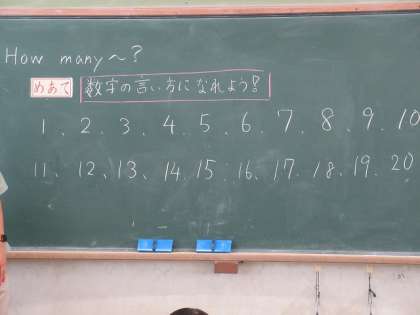 How many～?
めあて 数字の言い方になれよう!
1、2、3、4、5、6、7、8、9、10
11、12、13、14、15、16、17、18、19、20